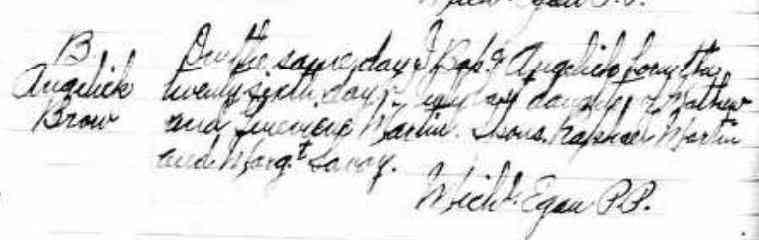 Mich. Egan P.P.
B
Angelick
Brow
On the same day I Bap. Angelick born the
twenty sixth day July last daughter of Mathew
and and Martin. Spons. Raphael Martin
and Marg.t Savoy.
Mich. Egan P.P.